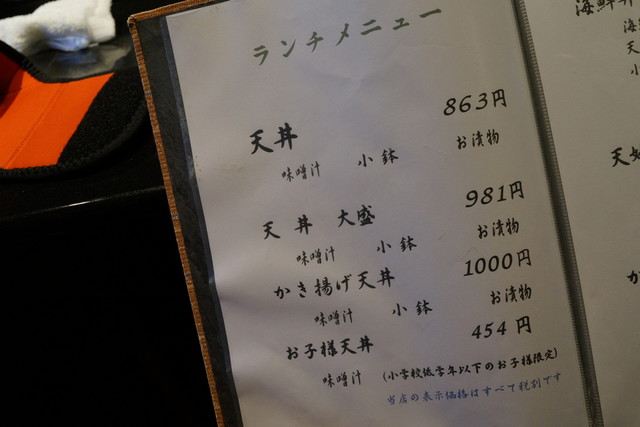 ランチメニュー
天丼 863円
味噌汁 小鉢 お漬物
天丼 大盛 981円
味噌汁 小鉢 お漬物
かき揚げ天丼 1000円
味噌汁 小鉢 お漬物
お子様天丼 454円
味噌汁 (小学校低学年以下のお子様限定)
当店の表示価格はすべて税別です
海鮮丼
海
天
小
天
か